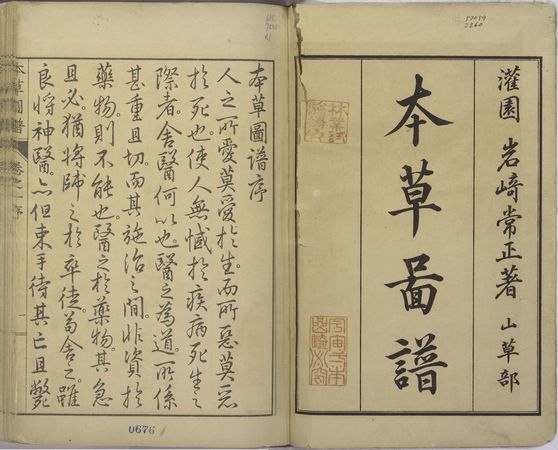 灌園 岩﨑常正著 山草部
本草圖譜
本草圖譜序
人之所愛莫愛於生而所惡莫惡
於死也使人無憾於疾病死生之
際者舍醫何以也醫之為道所係
甚重且切而其施治之間非資於
藥物則不能也醫之於藥物其急
且必猶將師之於卒徒苟舍之雖
良將神醫亦但束手待其亡且斃
本草圖譜 卷之一序
0676